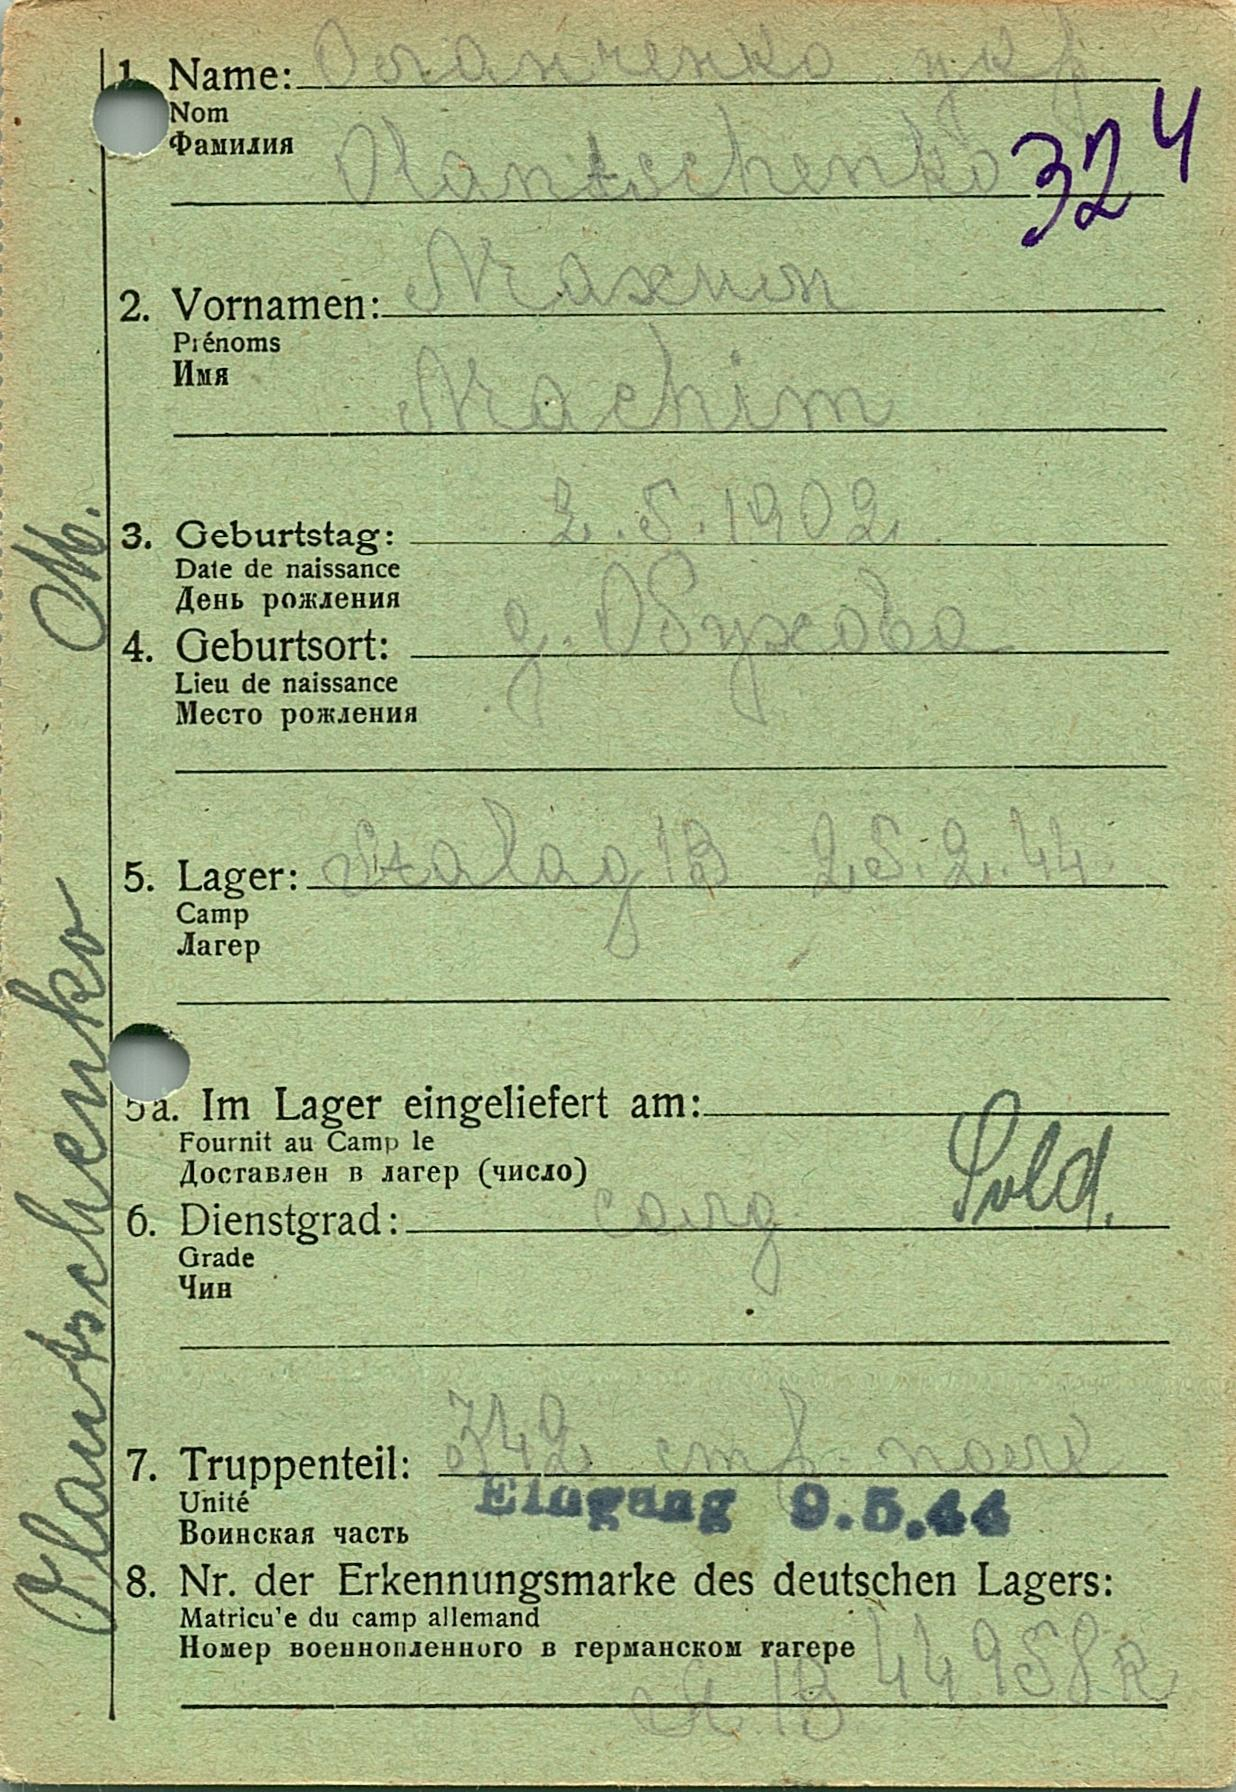 1. Name:
Nom
Фамилия
324
2. Vornamen: Максим
Prénoms
Имя
Machim
3. Geburtstag: 2.5.1902.
Date de naissance
День рождения
4. Geburtsort: д. Обухова
Lieu de naissance
Место рождения
5. Lager: Stalag IB 25.2.44.
Camp
Лагерь
5a. Im Lager eingeliefert am:
Fournit au Camp le
Доставлен в лагер (число)
6. Dienstgrad: Sold.
Grade
Чин
7. Truppenteil: 342
Unité
Eingang 9.5.44
Воинская часть
8. Nr. der Erkennungsmarke des deutschen Lagers:
Matricu'e du camp allemand
Номер военнопленного в германском лагере
St. IB 44958
M.